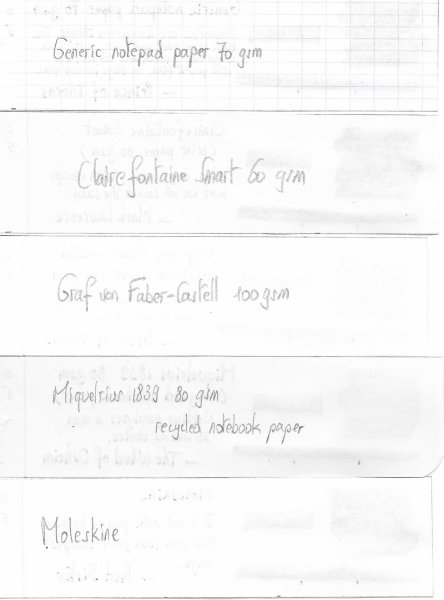 Generic notepad paper 70 gsm
Clairefontaine Smart 60 gsm
Graf von Faber-Castell 100 gsm
Miquelrius 1839 80 gsm
recycled notebook paper
Moleskine